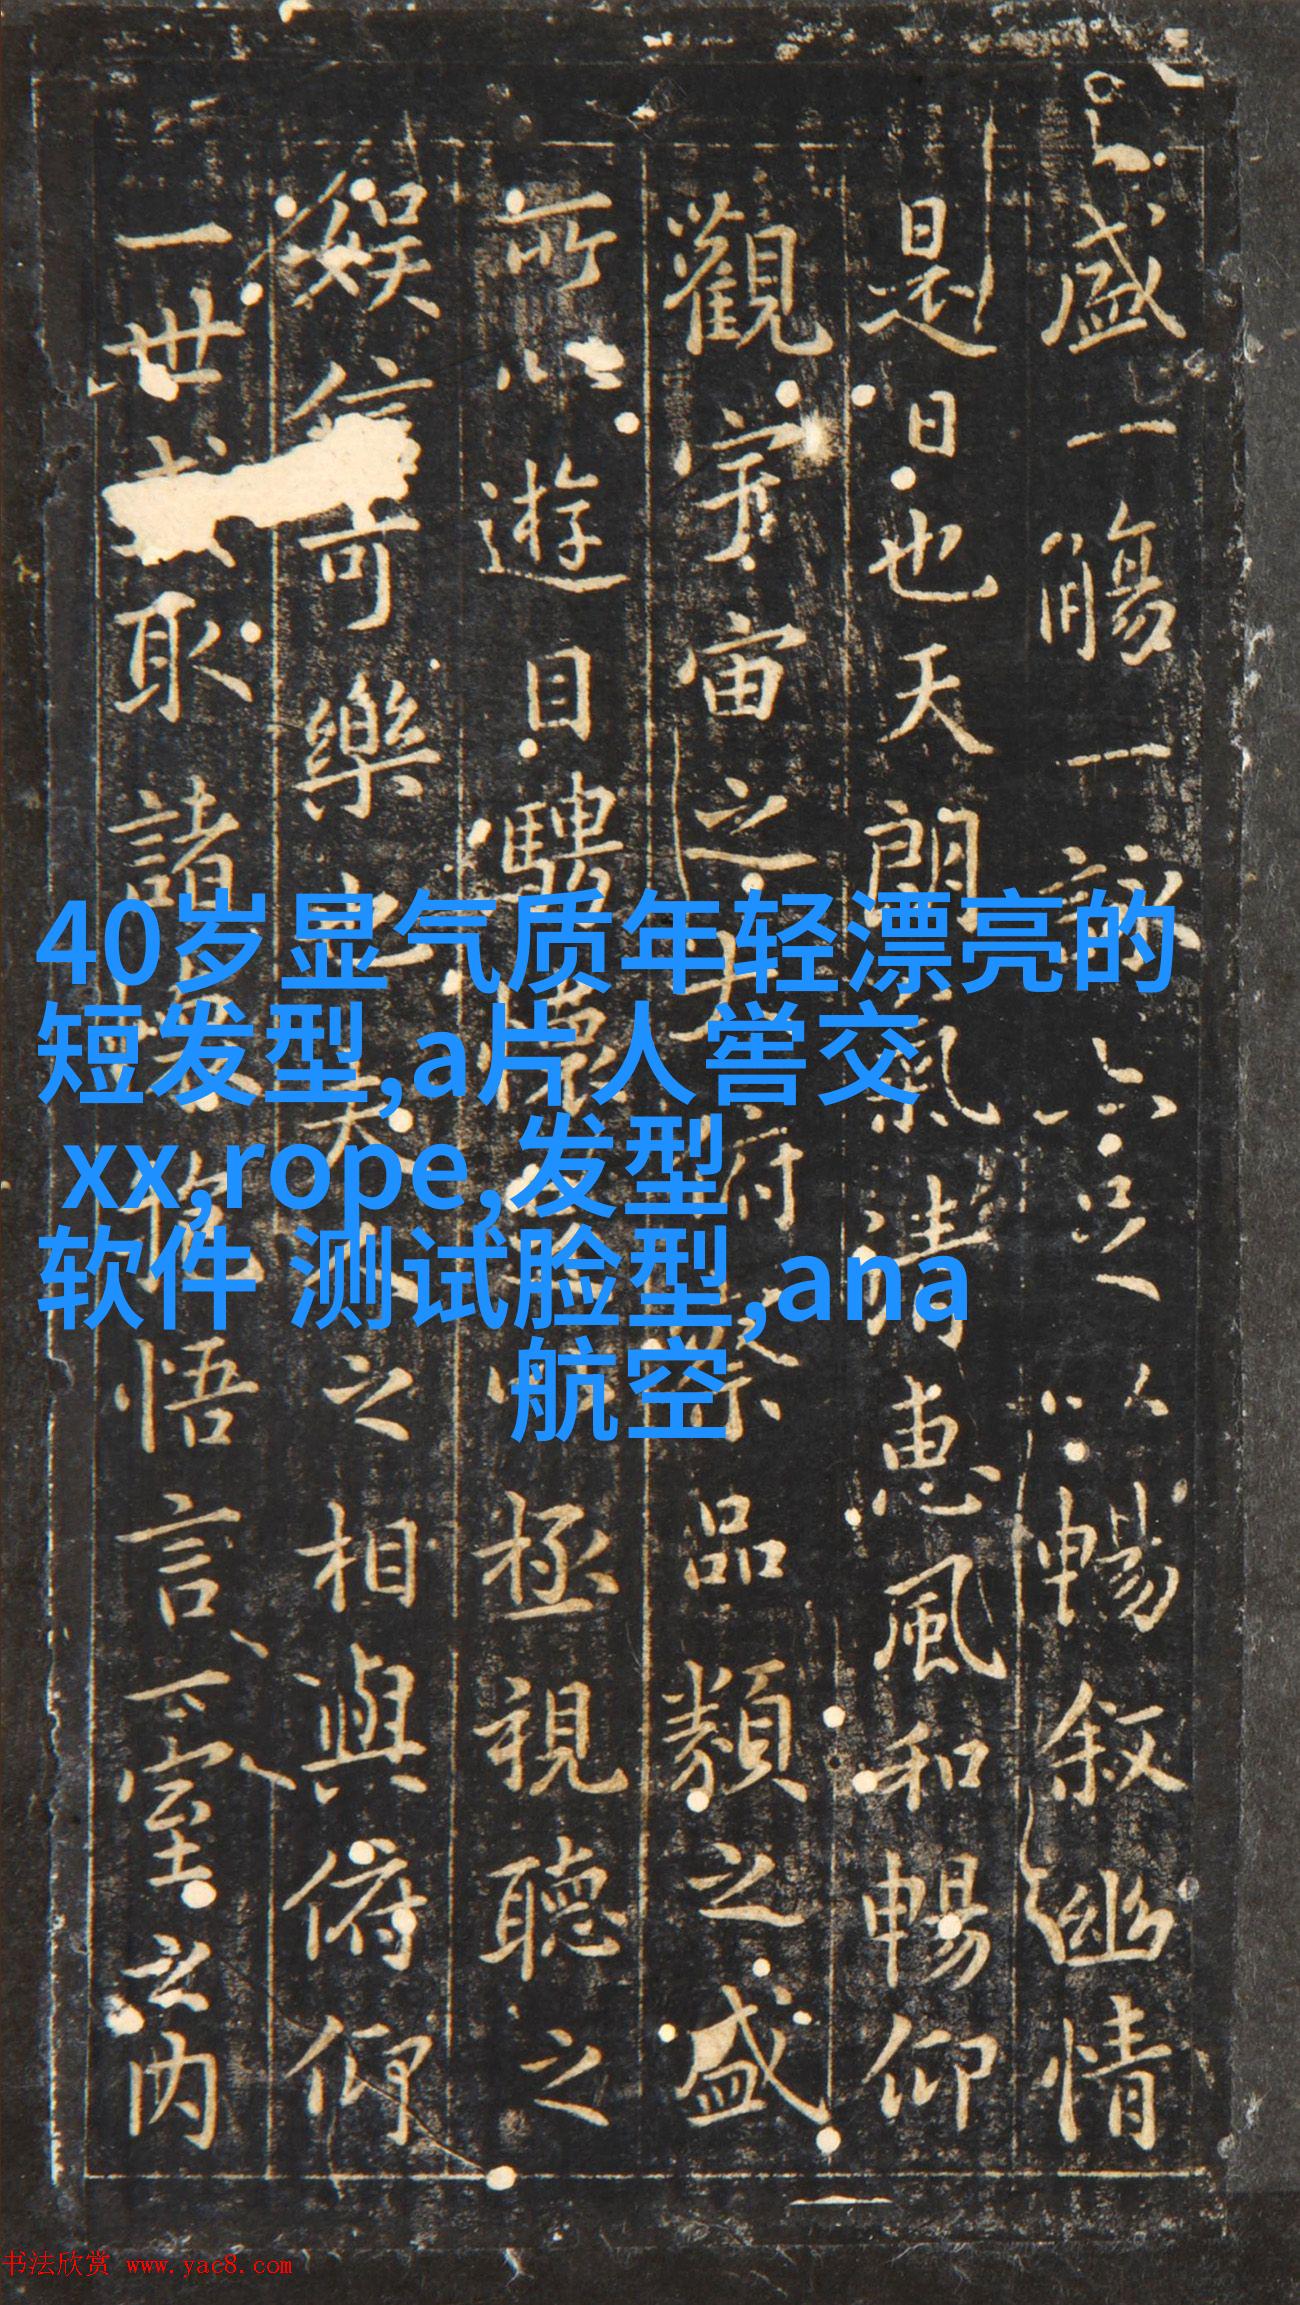 盛一觴一詠亦足以暢叙幽情
是日也天朗氣清惠風和暢仰
觀宇宙之大俯察品類之盛
所以遊目騁懷足以極視聽之
娛信可樂也夫人之相與俯仰
一世或取諸懷抱悟言一室之內
40岁显气质年轻漂亮的
短发型,a片人喾交
xx,rope,发型
软件 测试脸型,ana
航空
书法欣赏 www.yac8.com